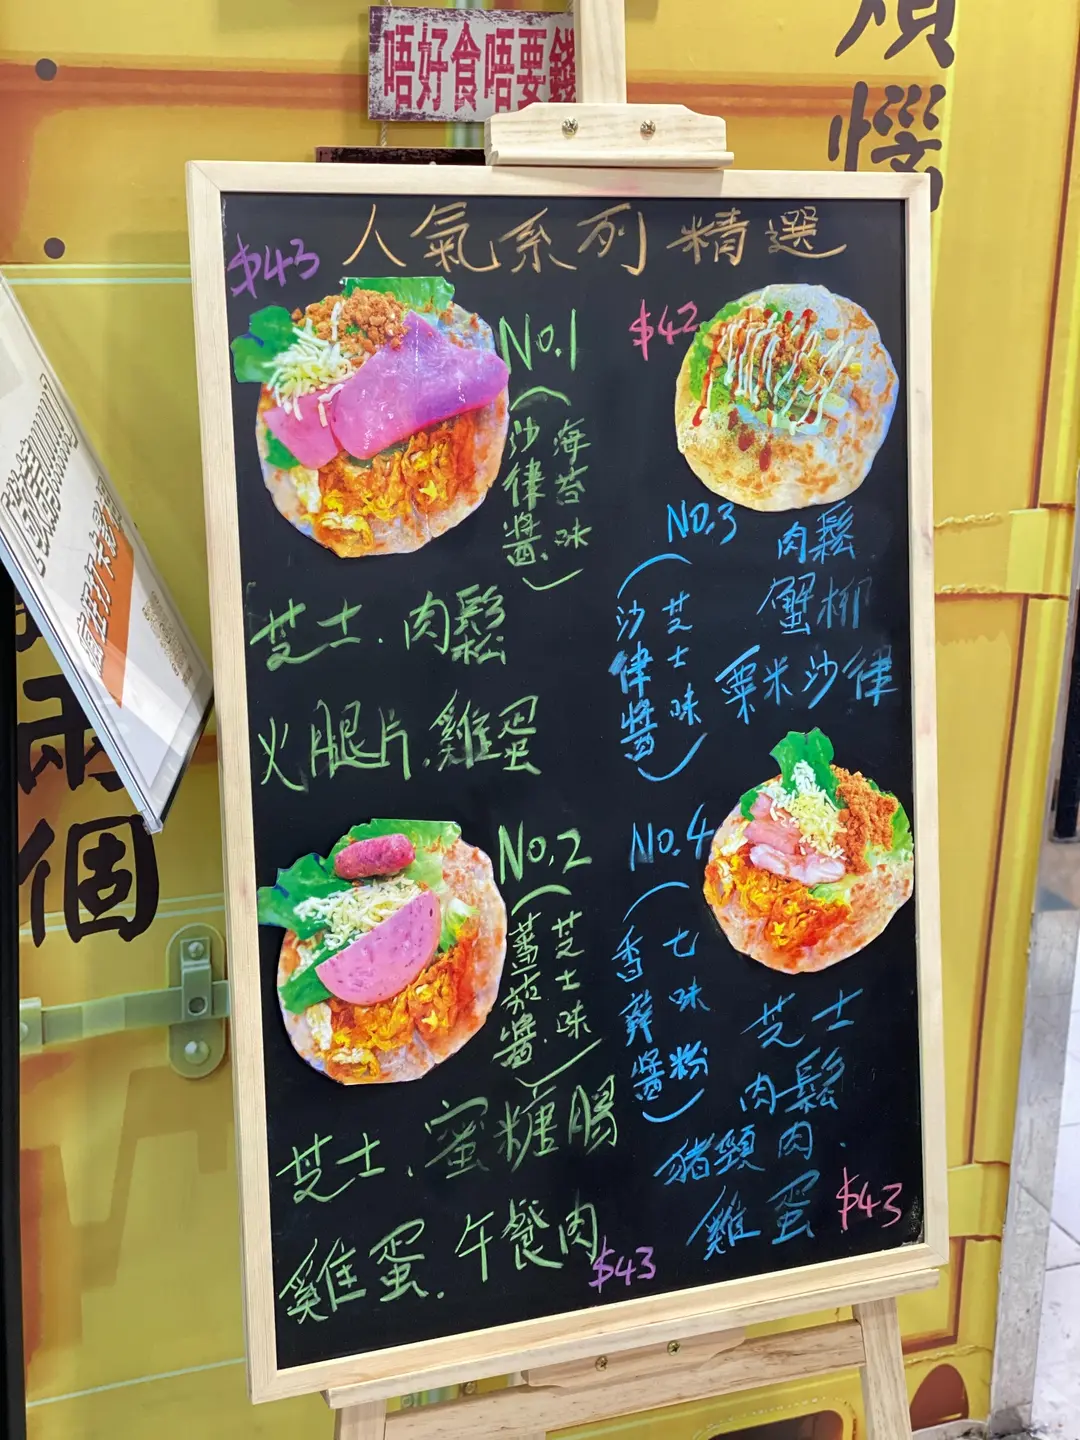 唔好食唔要錢
惱
兩
個
人氣系列精選
$43
No.1
(海苔味
沙律醬)
芝士.肉鬆
火腿片.雞蛋
No.2
(芝士味
蕃茄醬)
芝士.蜜糖腸
雞蛋.午餐肉
$43
$42
No.3
(芝士味
沙律醬)
肉鬆
蟹柳
粟米沙律
No.4
(七味粉
香辣醬)
芝士
肉鬆
豬頸肉.
雞蛋
$43